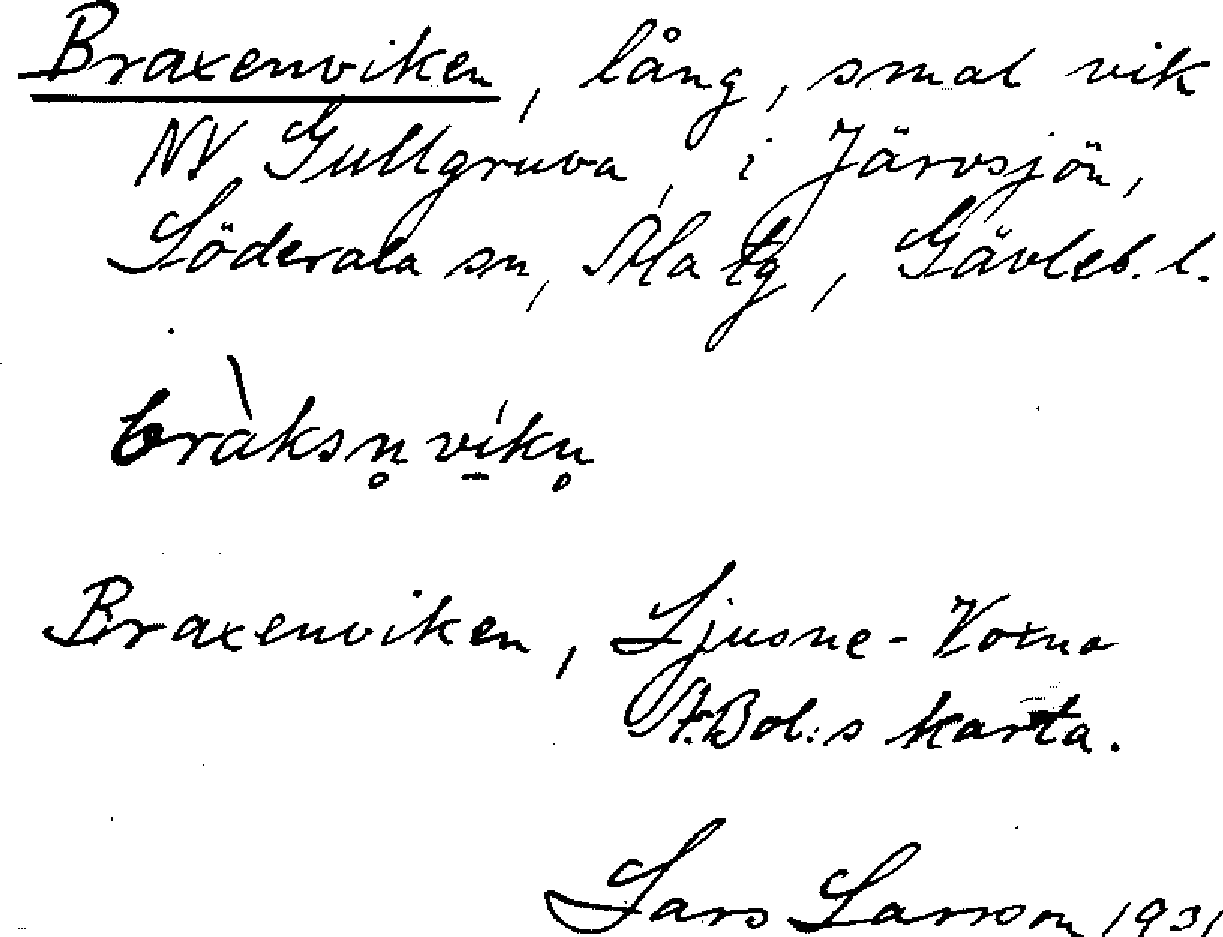 Braxenviken, lång, smal vik
NV Gullgruva, i Järvsjön,
Söderala sn, Ala tg, Gävleb. l.
bràksn̥ vík̠n̥
Braxenviken, Ljusne-Voxna
A.Bol:s karta.
Lars Larsson 1931